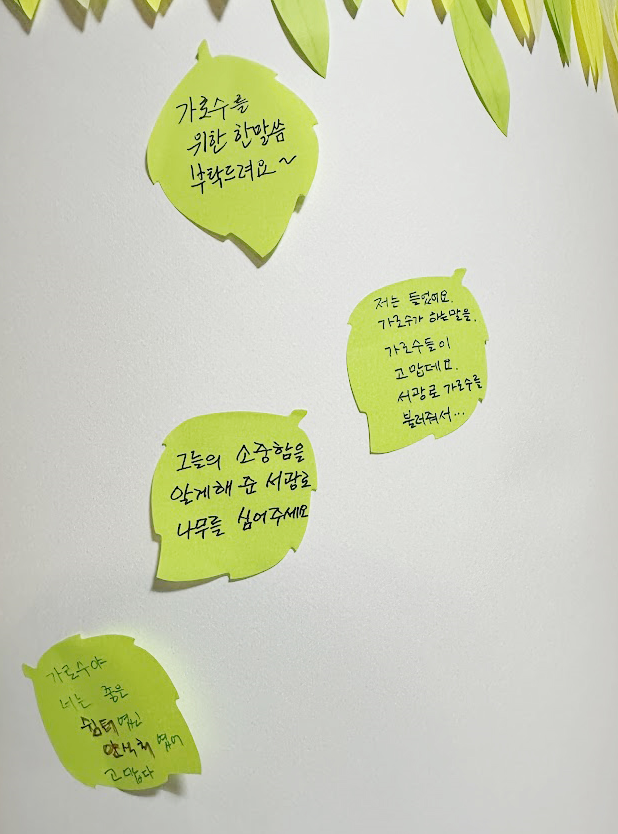 가로수를
위한 한말씀
부탁드려요~
저는 들었어요.
가로수가 하는말을.
가로수들이
고맙데요.
서광로 가로수를
불러줘서...
그늘의 소중함을
알게해 준 서광로
나무를 심어주세요
가로수야
너는 좋은
쉼터였고
안식처였어
고맙다